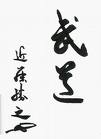 武道
近藤勝之